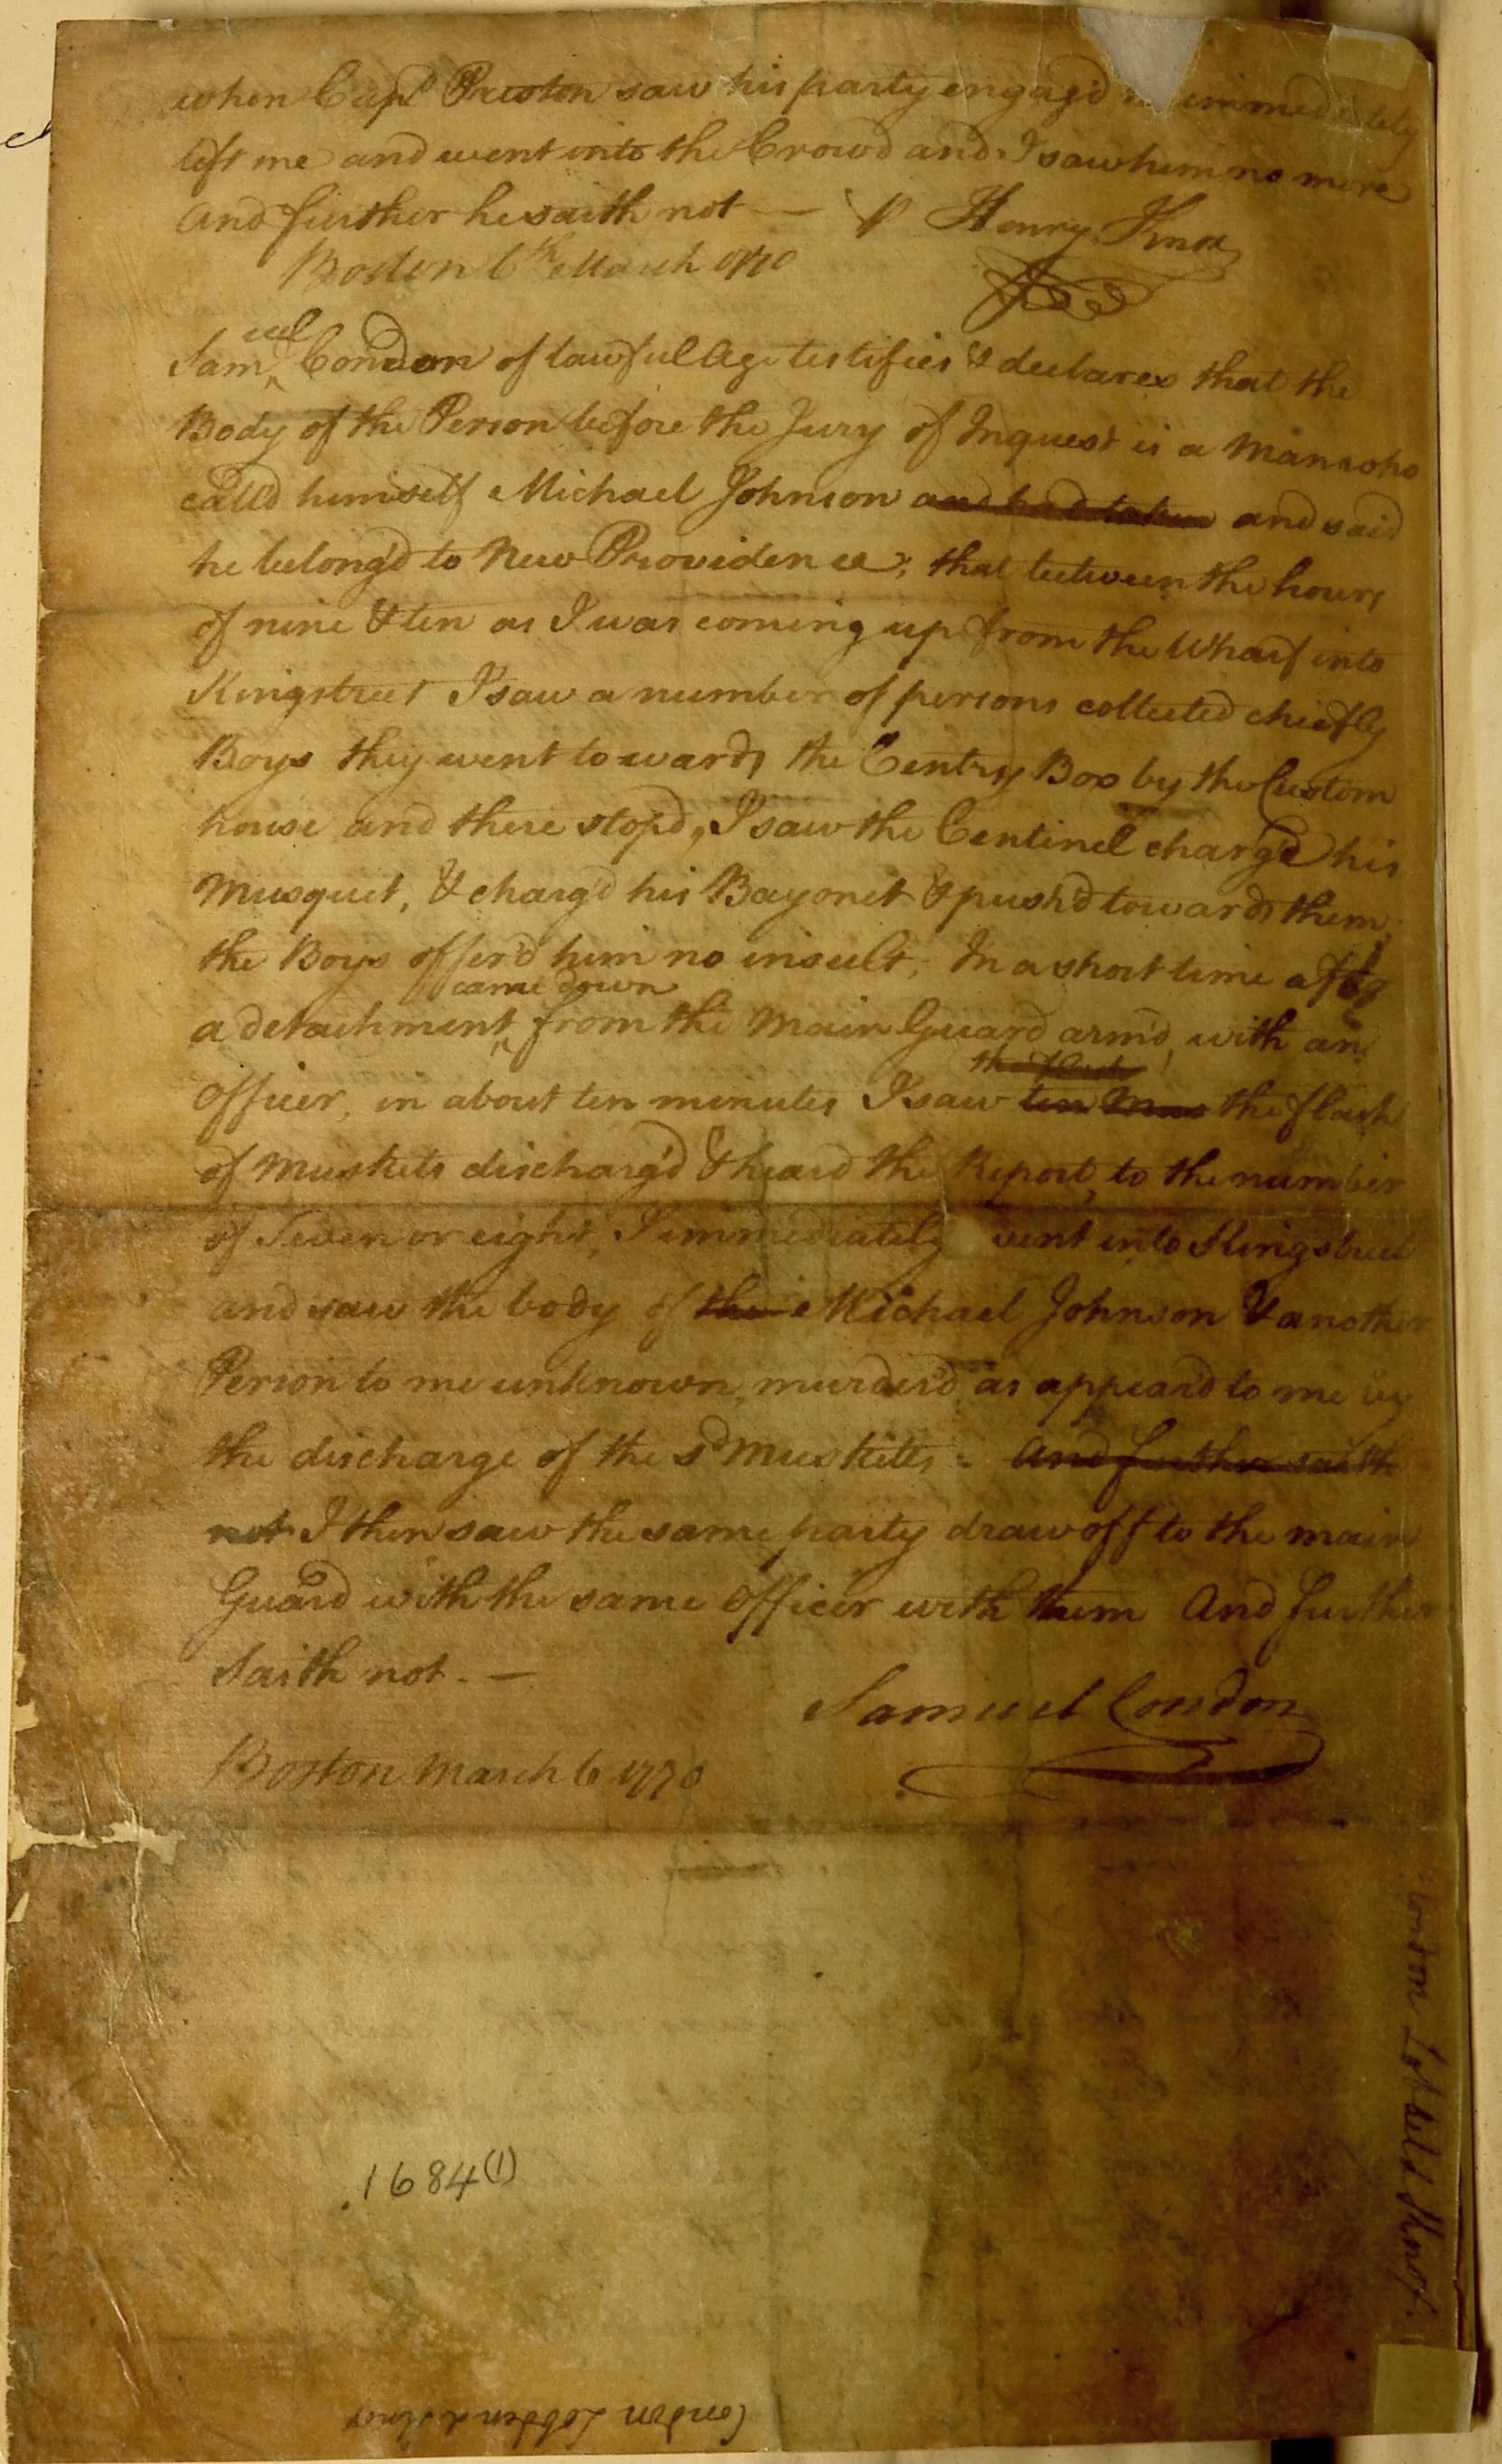 when Capt Preston saw his party engag'd immediately
left me and went into the Crowd and I saw him no more
And further he saith not — Henry Knox
Boston 6th March 1770
Samuel Condon of lawful Age testifies & declares that the
Body of the Person before the Jury of Inquest is a Man who
calld himself Michael Johnson and had taken and said
he belong'd to New Providence; that between the hours
of nine & ten as I was coming up from the Wharf into
Kingstreet I saw a number of persons collected chiefly
Boys they went towards the Centry Box by the Custom
house and there stop'd, I saw the Centinel charg'd his
Musquet, & charg'd his Bayonet & push'd towards them,
the Boys offer'd him no insult, In a short time after
came down
a detachment from the Main Guard arm'd, with an
the flash
Officer, in about ten minutes I saw ten the flash
of Muskets discharg'd & heard the Report, to the number
of Seven or eight, I immediately went into Kingstreet
and saw the body of the Michael Johnson & another
Person to me unknown, murder'd, as appeard to me by
the discharge of the sd Musketts: and further saith
not I then saw the same party draw off to the main
Guard with the same Officer with them And further
Saith not. —
Samuel Condon
Boston March 6 1770
1684(1)
Condon Lobdel & Knox
Condon Lobden & Knox